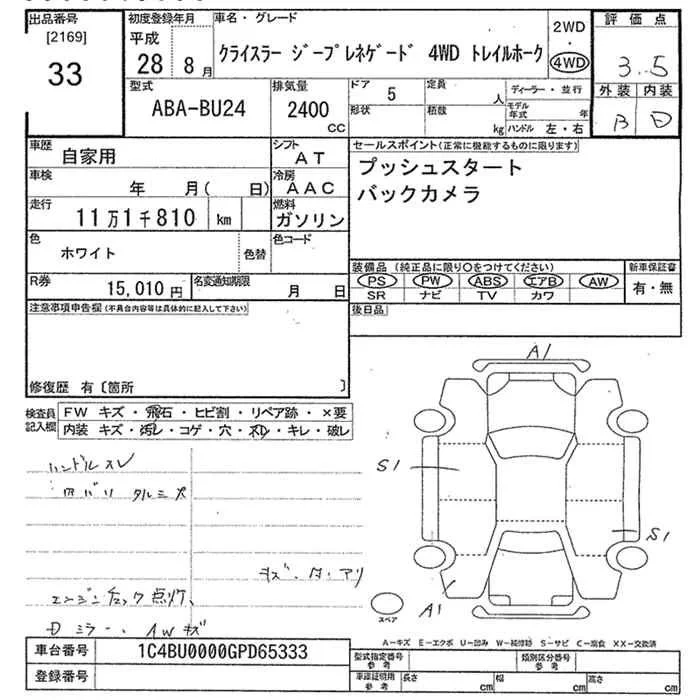 出品番号
[2169]
33
初度登録年月
平成
28 8月
車名・グレード
クライスラー ジープレネゲード 4WD トレイルホーク
2WD
・
4WD
評価点
3.5
外装 内装
B D
型式
ABA-BU24
排気量
2400
CC
ドア 5
定員 人
形状
積数 kg
ディーラー・並行
モデル年式 年
ハンドル 左・右
車歴
自家用
シフト
AT
車検
年 月( 日)
冷房
AAC
走行
11万1千810 km
燃料
ガソリン
色
ホワイト
色替
色コード
R券
15,010円
名変通知期限
月 日
セールスポイント(正常に機能するものに限ります)
プッシュスタート
バックカメラ
装備品 (純正品に限り○をつけてください)
PS PW ABS エアB AW
SR ナビ TV カワ
新車保証書
有・無
後日品
注意事項申告欄(不具合内容等は具体的に記入して下さい)
修復歴 有〔箇所 〕
検査員
記入欄
FW キズ・飛石・ヒビ割・リペア跡・×要
内装 キズ・汚レ・コゲ・穴・スレ・キレ・破レ
ハンドルスレ
内バリ タルミ大
エンジンチェック点灯、
Dミラー、AWキズ
A1
S1
S1
A1
スペア
A-キズ E-エクボ U-凹み W-補修跡 S-サビ C-腐食 XX-交換済
車台番号
1C4BU0000GPD65333
登録番号
型式指定番号
参考
類別区分番号
参考
車庫証明用
参考
長さ cm
幅 cm
高さ cm